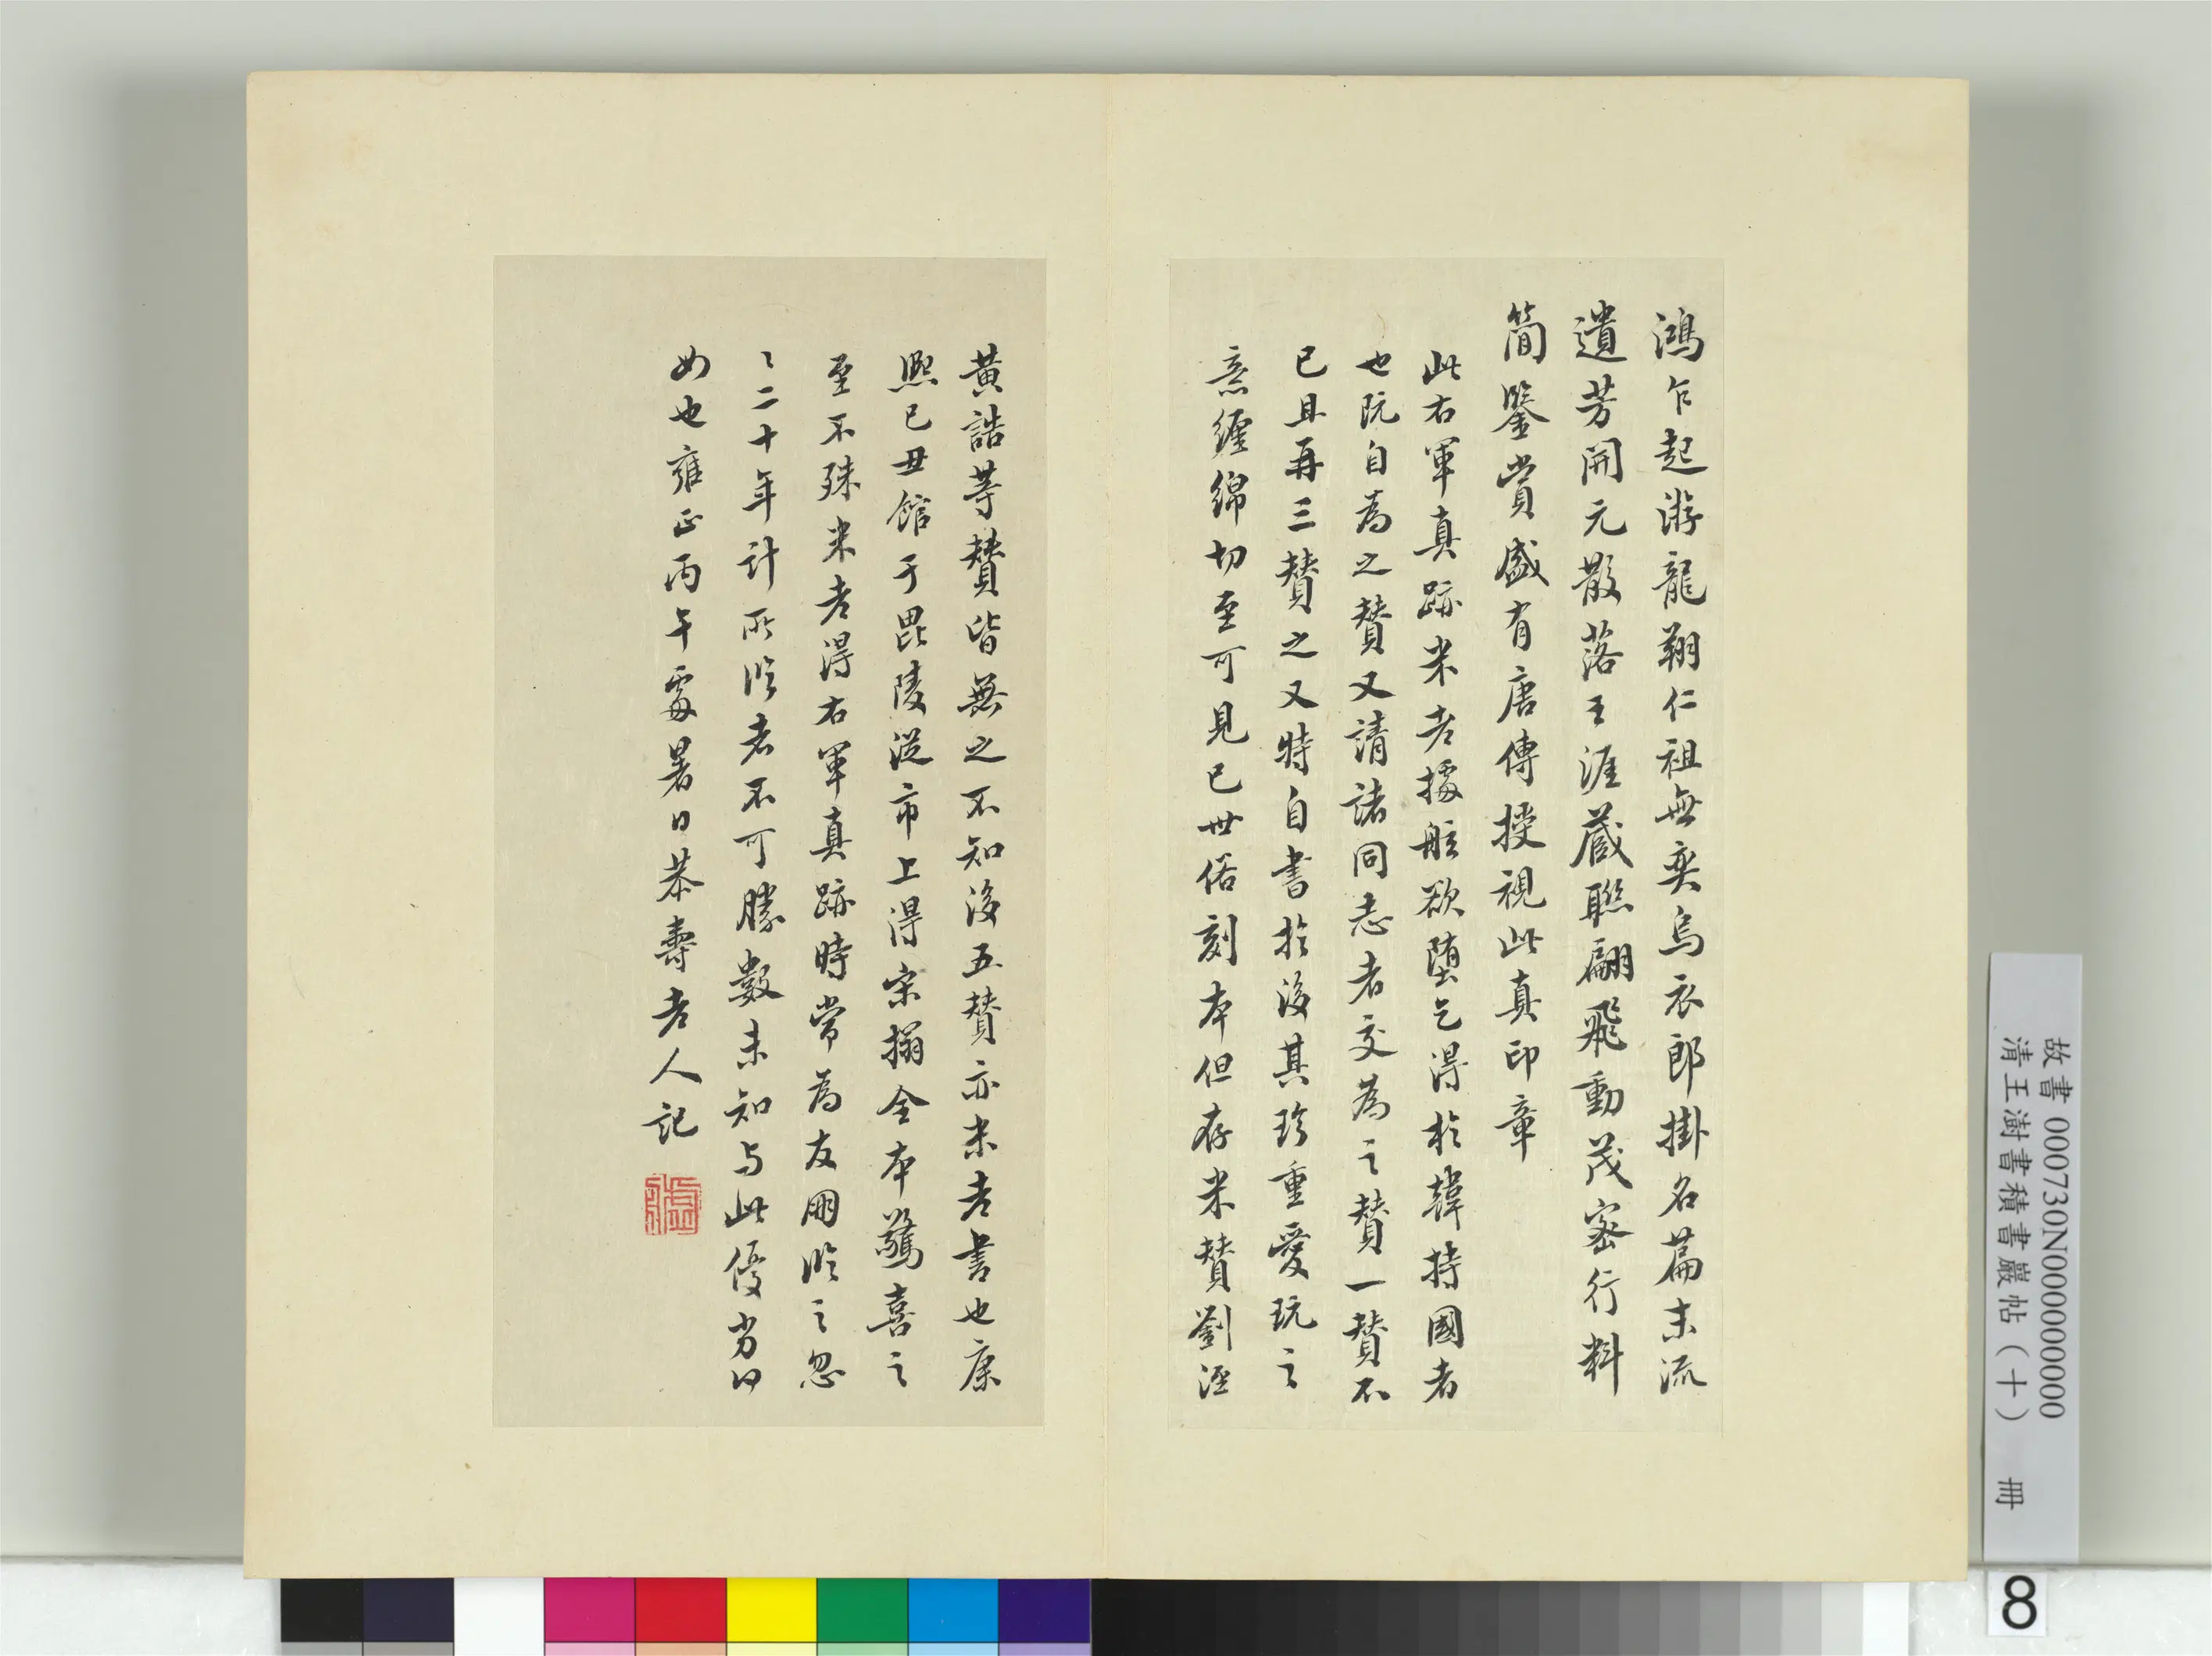 鴻乍起游龍翔仁祖無奕烏衣郎掛名篇末流
遺芳開元散落王涯藏聯翩飛動茂密行料
簡鑒賞盛有唐傳授視此真印章
此右軍真跡米老據舷欲墮乞得於韓持國者
也既自為之贊又請諸同志者交為之贊一贊不
已且再三贊之又特自書於後其珍重愛玩之
意纏綿切至可見已世俗刻本但存米贊劉涇
黃誥等贊皆無之不知後五贊亦米老書也康
熙己丑館于毘陵從市上得宋搨全本驚喜之
至不殊米老得右軍真跡時常為友朋臨之忽
〻二十年計所臨者不可勝數未知与此優劣何
如也雍正丙午處暑日恭壽老人記
故書 000730N000000000
清王澍書積書巖帖（十） 冊
8